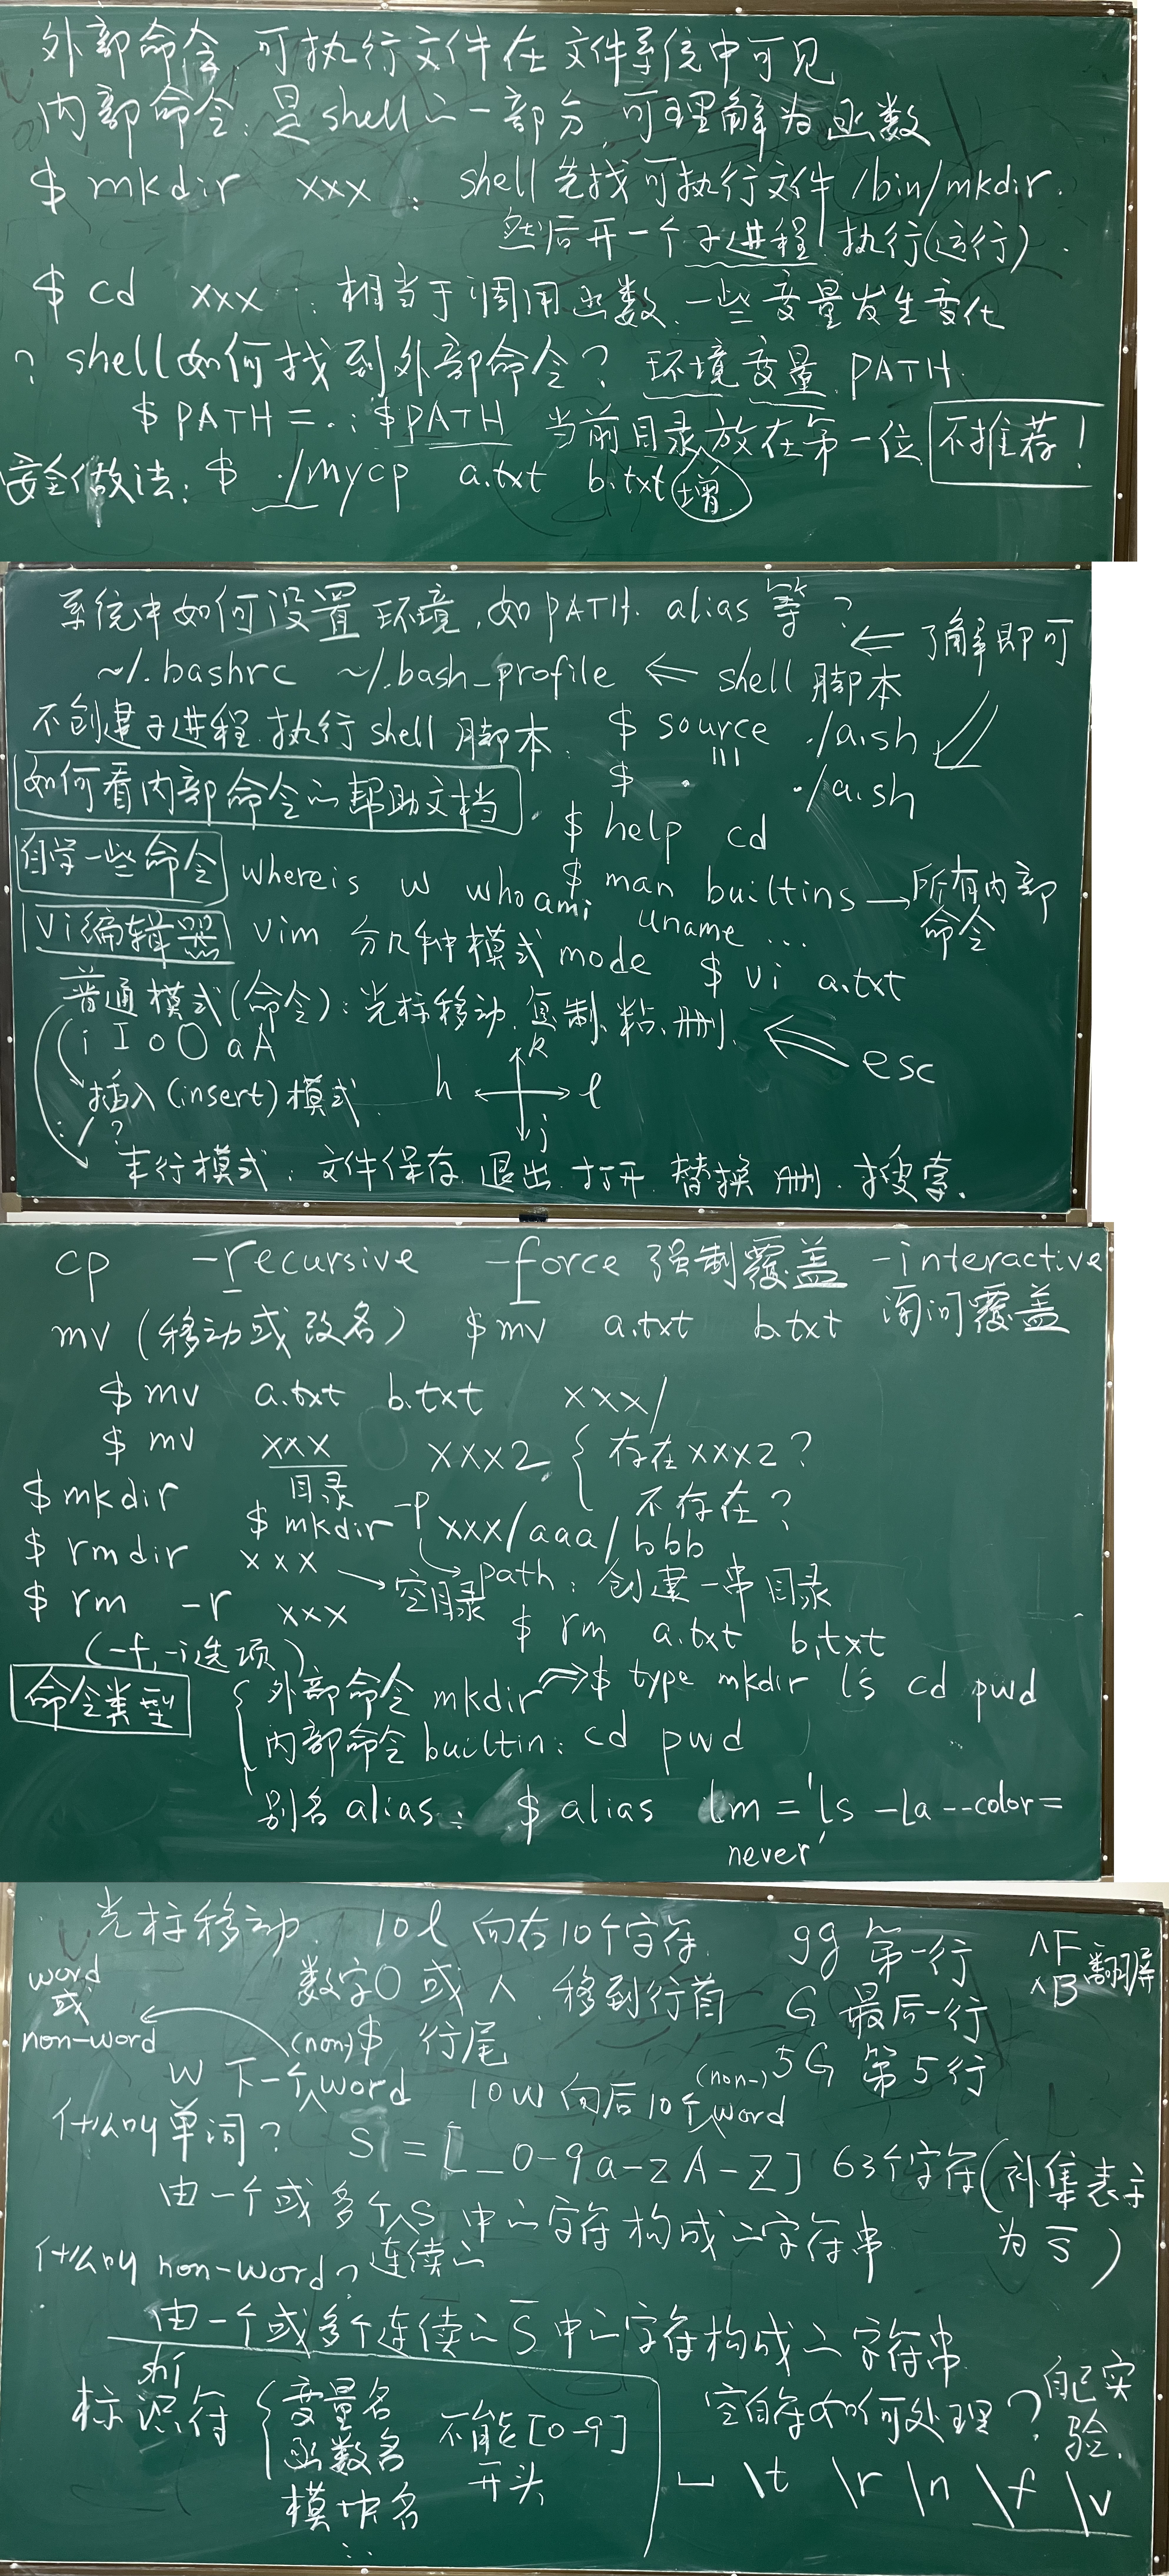 外部命令 可执行文件在文件系统中可见
内部命令: 是shell的一部分 可理解为函数
$ mkdir xxx : shell 先找可执行文件 /bin/mkdir.
然后开一个子进程 执行(运行).
$ cd xxx : 相当于调用函数. 一些变量发生变化
? shell如何找到外部命令? 环境变量 PATH.
$ PATH=.:$PATH 当前目录放在第一位 不推荐!
安全做法: $ ./mycp a.txt b.txt 增
系统中如何设置环境, 如PATH. alias 等?
← 了解即可
~/.bashrc ~/.bash_profile ⇐ shell 脚本
不创建子进程 执行shell 脚本. $ source ./a.sh
$ . ./a.sh
如何看内部命令的帮助文档. $ help cd
$ man builtins → 所有内部命令
自学一些命令 whereis w whoami uname ...
vi编辑器 vim 分几种模式 mode $ vi a.txt
普通模式(命令): 光标移动. 复制、粘、删. ⇐ esc
i I o O a A
h j k l
插入(insert)模式.
: / ?
末行模式: 文件保存. 退出. 打开. 替换 删. 搜索.
cp -recursive -force 强制覆盖 -interactive 询问覆盖
mv (移动或改名) $mv a.txt b.txt
$ mv a.txt b.txt xxx/
$ mv xxx xxx2 { 存在xxx2?
目录 不存在?
$ mkdir $ mkdir -p xxx/aaa/bbb
path: 创建一串目录
$ rmdir xxx → 空目录
$ rm -r xxx $ rm a.txt b.txt
(-f, -i选项)
命令类型 { 外部命令 mkdir ⇒ $ type mkdir ls cd pwd
内部命令 builtin: cd pwd
别名 alias: $ alias lm='ls -la --color=
never'
光标移动. 10l 向右10个字符. gg 第一行 ^F ^B 翻屏
数字0 或 ^ 移到行首 G 最后一行
$ 行尾 5G 第5行
word 或 non-word
w 下一个(non)word 10w 向后10个(non-)word
什么叫单词? S = [_0-9a-zA-Z] 63个字符(补集表示
为 S̅)
由一个或多个连续的S 中的字符构成的字符串
什么叫 non-word?
由一个或多个连续的 S̅ 中的字符构成的字符串
标识符 { 变量名 不能[0-9]
函数名 开头
模块名
⋮
zhi
空白符如何处理? 自己实验.
␣ \t \r \n \f \v